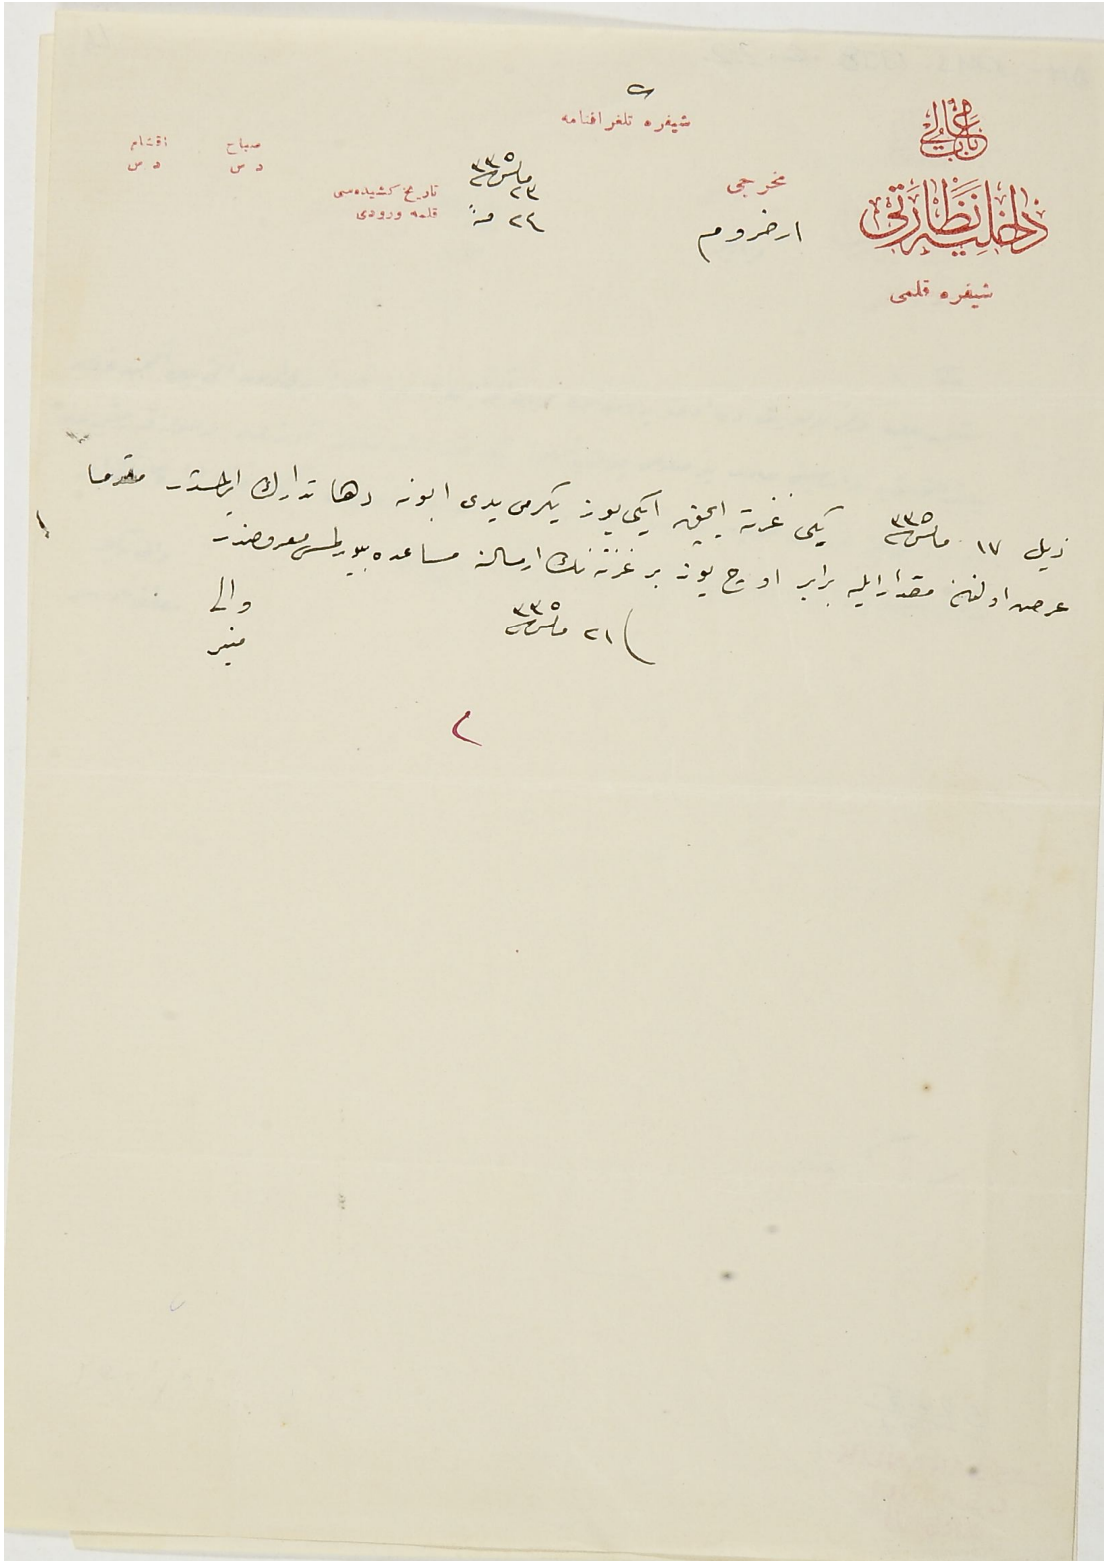 باب عالی
داخلیه نظارتی
شیفره قلمی
شیفره تلغرافنامه
مخرجی
ارضروم
تاریخ کشیده‌سی ٢٣ مارس سنه ٣٣٥
قلمه ورودی ٢٤ منه
صباح
د س
اقشام
د س
ذیل ١٧ مارس سنه ٣٣٥ یکی غزته ایچون ایکی یوز یکرمی یدی ابونه دها تدارك ایدلمشدر مقدما
عرض اولنان مقدار ایله برابر اوچ یوز بر غزته نك ارسالنه مساعده بیورلمسی معروضدر
٢١ مارس سنه ٣٣٥
والی
منیر